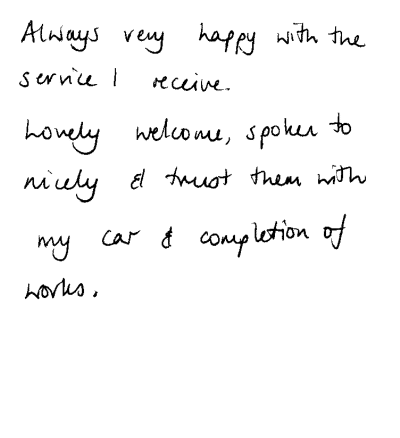 Always very happy with the
service I receive.
Lovely welcome, spoken to
nicely & trust them with
my car & completion of
works.